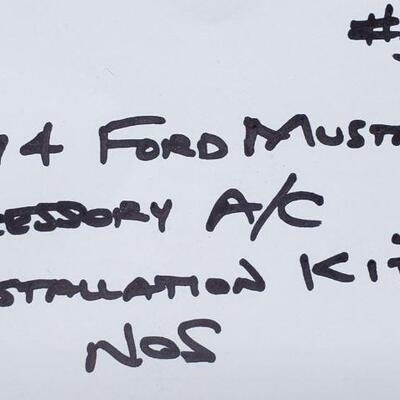 #
4 FORD MUSTA
CESSORY A/C
STALLATION KIT
NOS